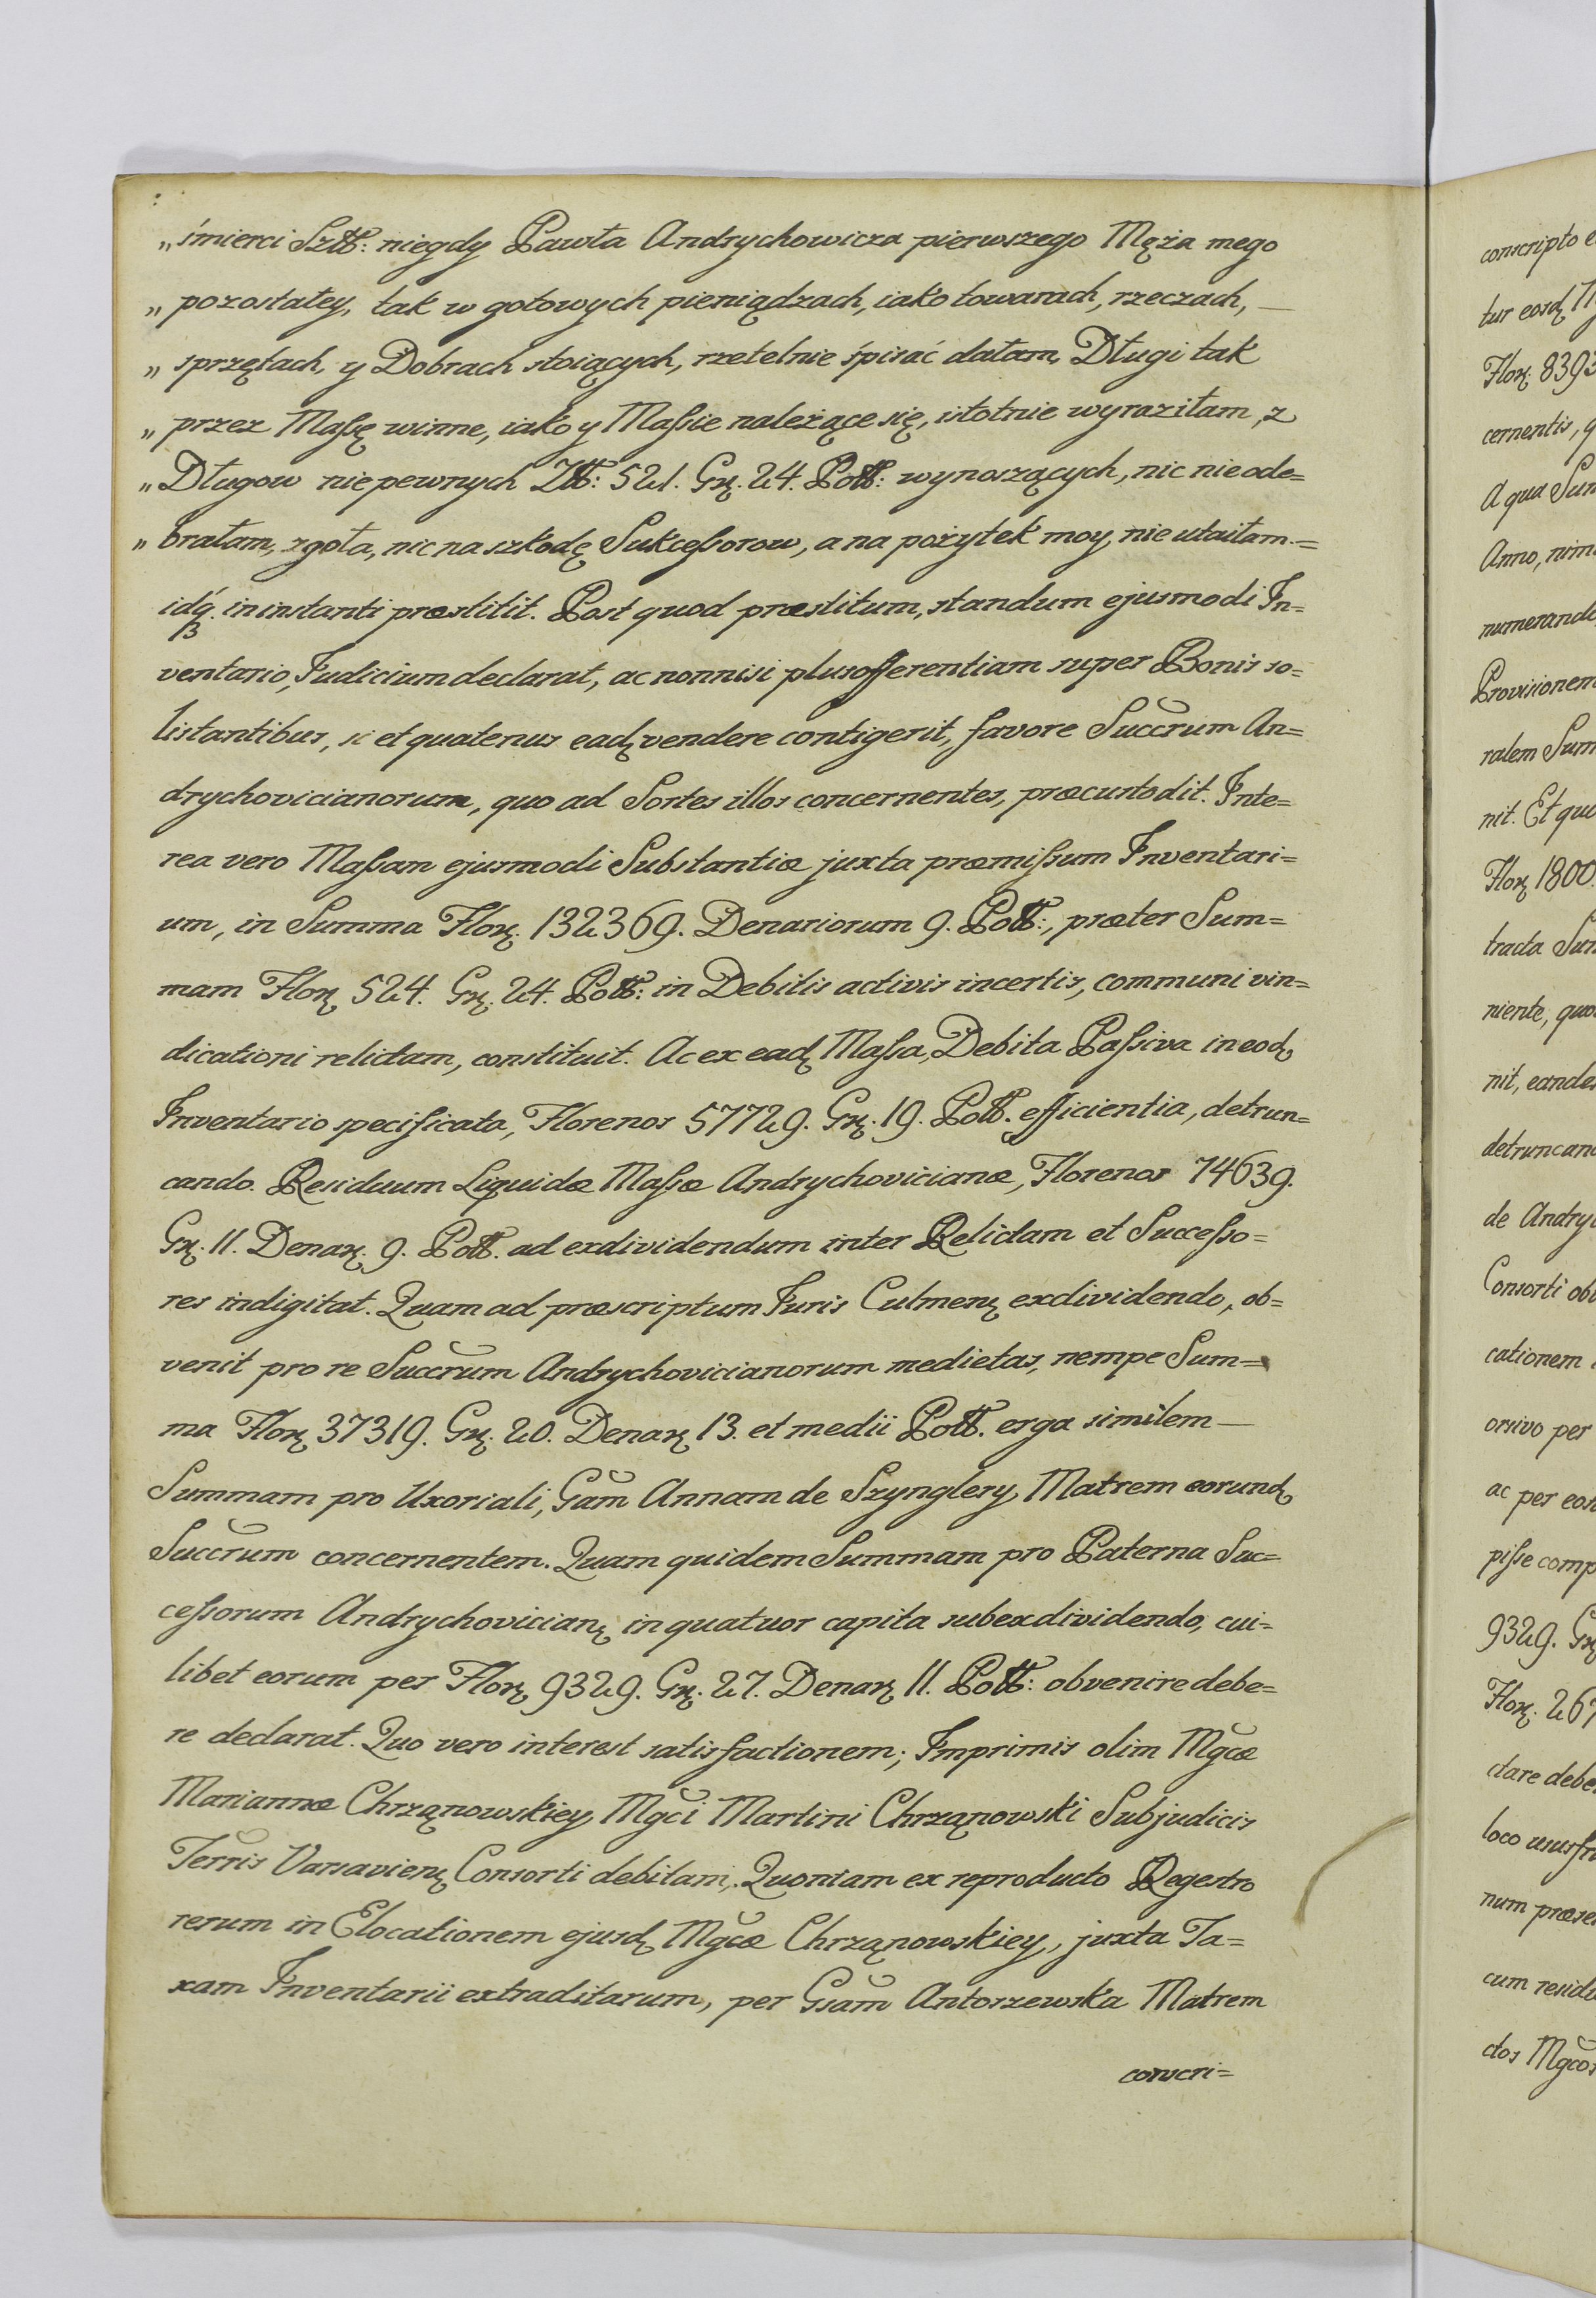 „śmierci Szltt: niegdy Pawła Andrychowicza pierwszego Męża mego
„pozostałey, tak w gotowych pieniądzach, iako towarach, rzeczach, —
„sprzętach, y Dobrach stoiących, rzetelnie śpisać dałam, Długi tak
„przez Massę winne, iako y Massie należące się, istotnie wyraziłam, z
„Długow niepewnych Złtt: 521. Grz. 24. Poltt: wynoszących, nic nie ode=
„brałam, zgoła, nic na szkodę Sukcessorow, a na pożytek moy, nie utaiłam.=
idq́. in instanti præstitit. Post quod præstitum, standum ejusmodi In=
ventario, Judicium declarat, ac nonnisi plusofferentiam super Bonis so=
listantibus, si et quatenus eadȩ vendere contigerit, favore Succrum An=
drychovicianorum, quo ad Sortes illos concernentes, præcustodit. Inte=
rea vero Massam ejusmodi Substantiæ juxta præmissum Inventari=
um, in Summa Florȩ. 132369. Denariorum 9. Poltt:, præter Sum=
mam Florȩ 524. Grȩ. 24. Poltt: in Debitis activis incertis, communi vin=
dicationi relictam, constituit. Ac ex eadȩ Massa, Debita Passiva in eodȩ
Inventario specificata, Florenos 57729. Grȩ. 19. Poltt. efficientia, detrun=
cando. Residuum Liquidæ Massæ Andrychovicianæ, Florenos 74639.
Grȩ. 11. Denarȩ. 9. Poltt. ad exdividendum inter Relictam et Successo=
res indigitat. Quam ad præscriptum Juris Culmenȩ exdividendo, ob=
venit pro re Succrum Andrychovicianorum medietas, nempe Sum=
ma Florȩ 37319. Grȩ. 20. Denarȩ 13. et medii Poltt. erga similem —
Summam pro Uxoriali, Gam Annam de Szynglery, Matrem eorundȩ
Succrum concernentem. Quam quidem Summam pro Paterna Suc=
cessorum Andrychovicianȩ in quatuor capita subexdividendo, cui=
libet eorum per Florȩ 9329. Grȩ. 27. Denarȩ 11. Poltt: obvenire debe=
re declarat. Quo vero interest satisfactionem; Imprimis olim Mgcæ
Mariannæ Chrząnowskiey, Mgci Martini Chrząnowski Subjudicis
Terris Varsavienȩ Consorti debitam, Quoniam ex reproducto Regestro
rerum in Elocationem ejusdȩ Mgcæ Chrząnowskiey, juxta Ta=
xam Inventarii extraditarum, per Gsam Antoszewska Matrem
conscri=
conscripto
tur eosdȩ
Florȩ. 8393
cernentis,
A qua Sum
Anno,
numerand
Provisionem
ralem Sum
nit. Et qui
Florȩ 1800.
tracta Sum
niente, quo
nit, eande
detruncan
de Andry
Consorti ob
cationem
orsivo per
ac per eos
pisse comp
9329. Gr
Florȩ. 267
dare debe
loco ususfru
num præse
cum resid
dos Mgcos